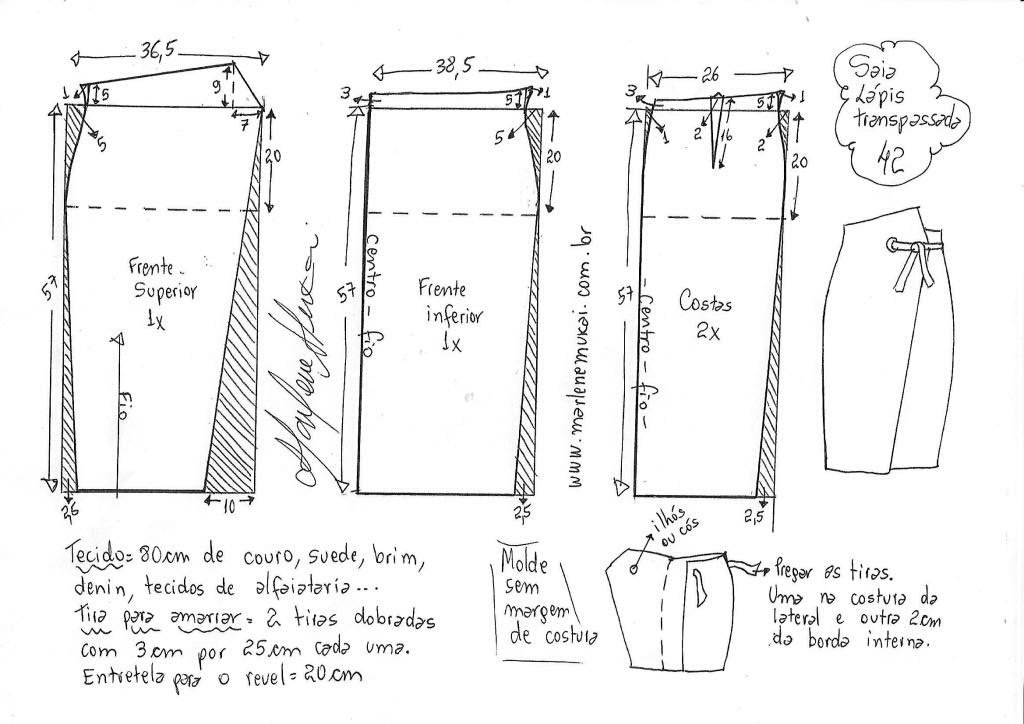 36,5
1
5
9
5
7
20
57
Frente
Superior
1x
Fio
2,5
10
Marlene Mukai
38,5
3
1
5
5
20
57
Centro - fio
Frente
inferior
1x
2,5
www.marlenemukai.com.br
26
3
1
5
1
2
16
2
20
57
- Centro - fio -
Costas
2x
2,5
Saia
Lápis
transpassada
42
Tecido= 80cm de couro, suede, brim,
denin, tecidos de alfaiataria...
Tira para amarrar= 2 tiras dobradas
com 3cm por 25cm cada uma.
Entretela para o revel= 20cm
Molde
sem
margem
de costura
ilhós
ou cós
Pregar as tiras.
Uma na costura da
lateral e outra 2cm
da borda interna.